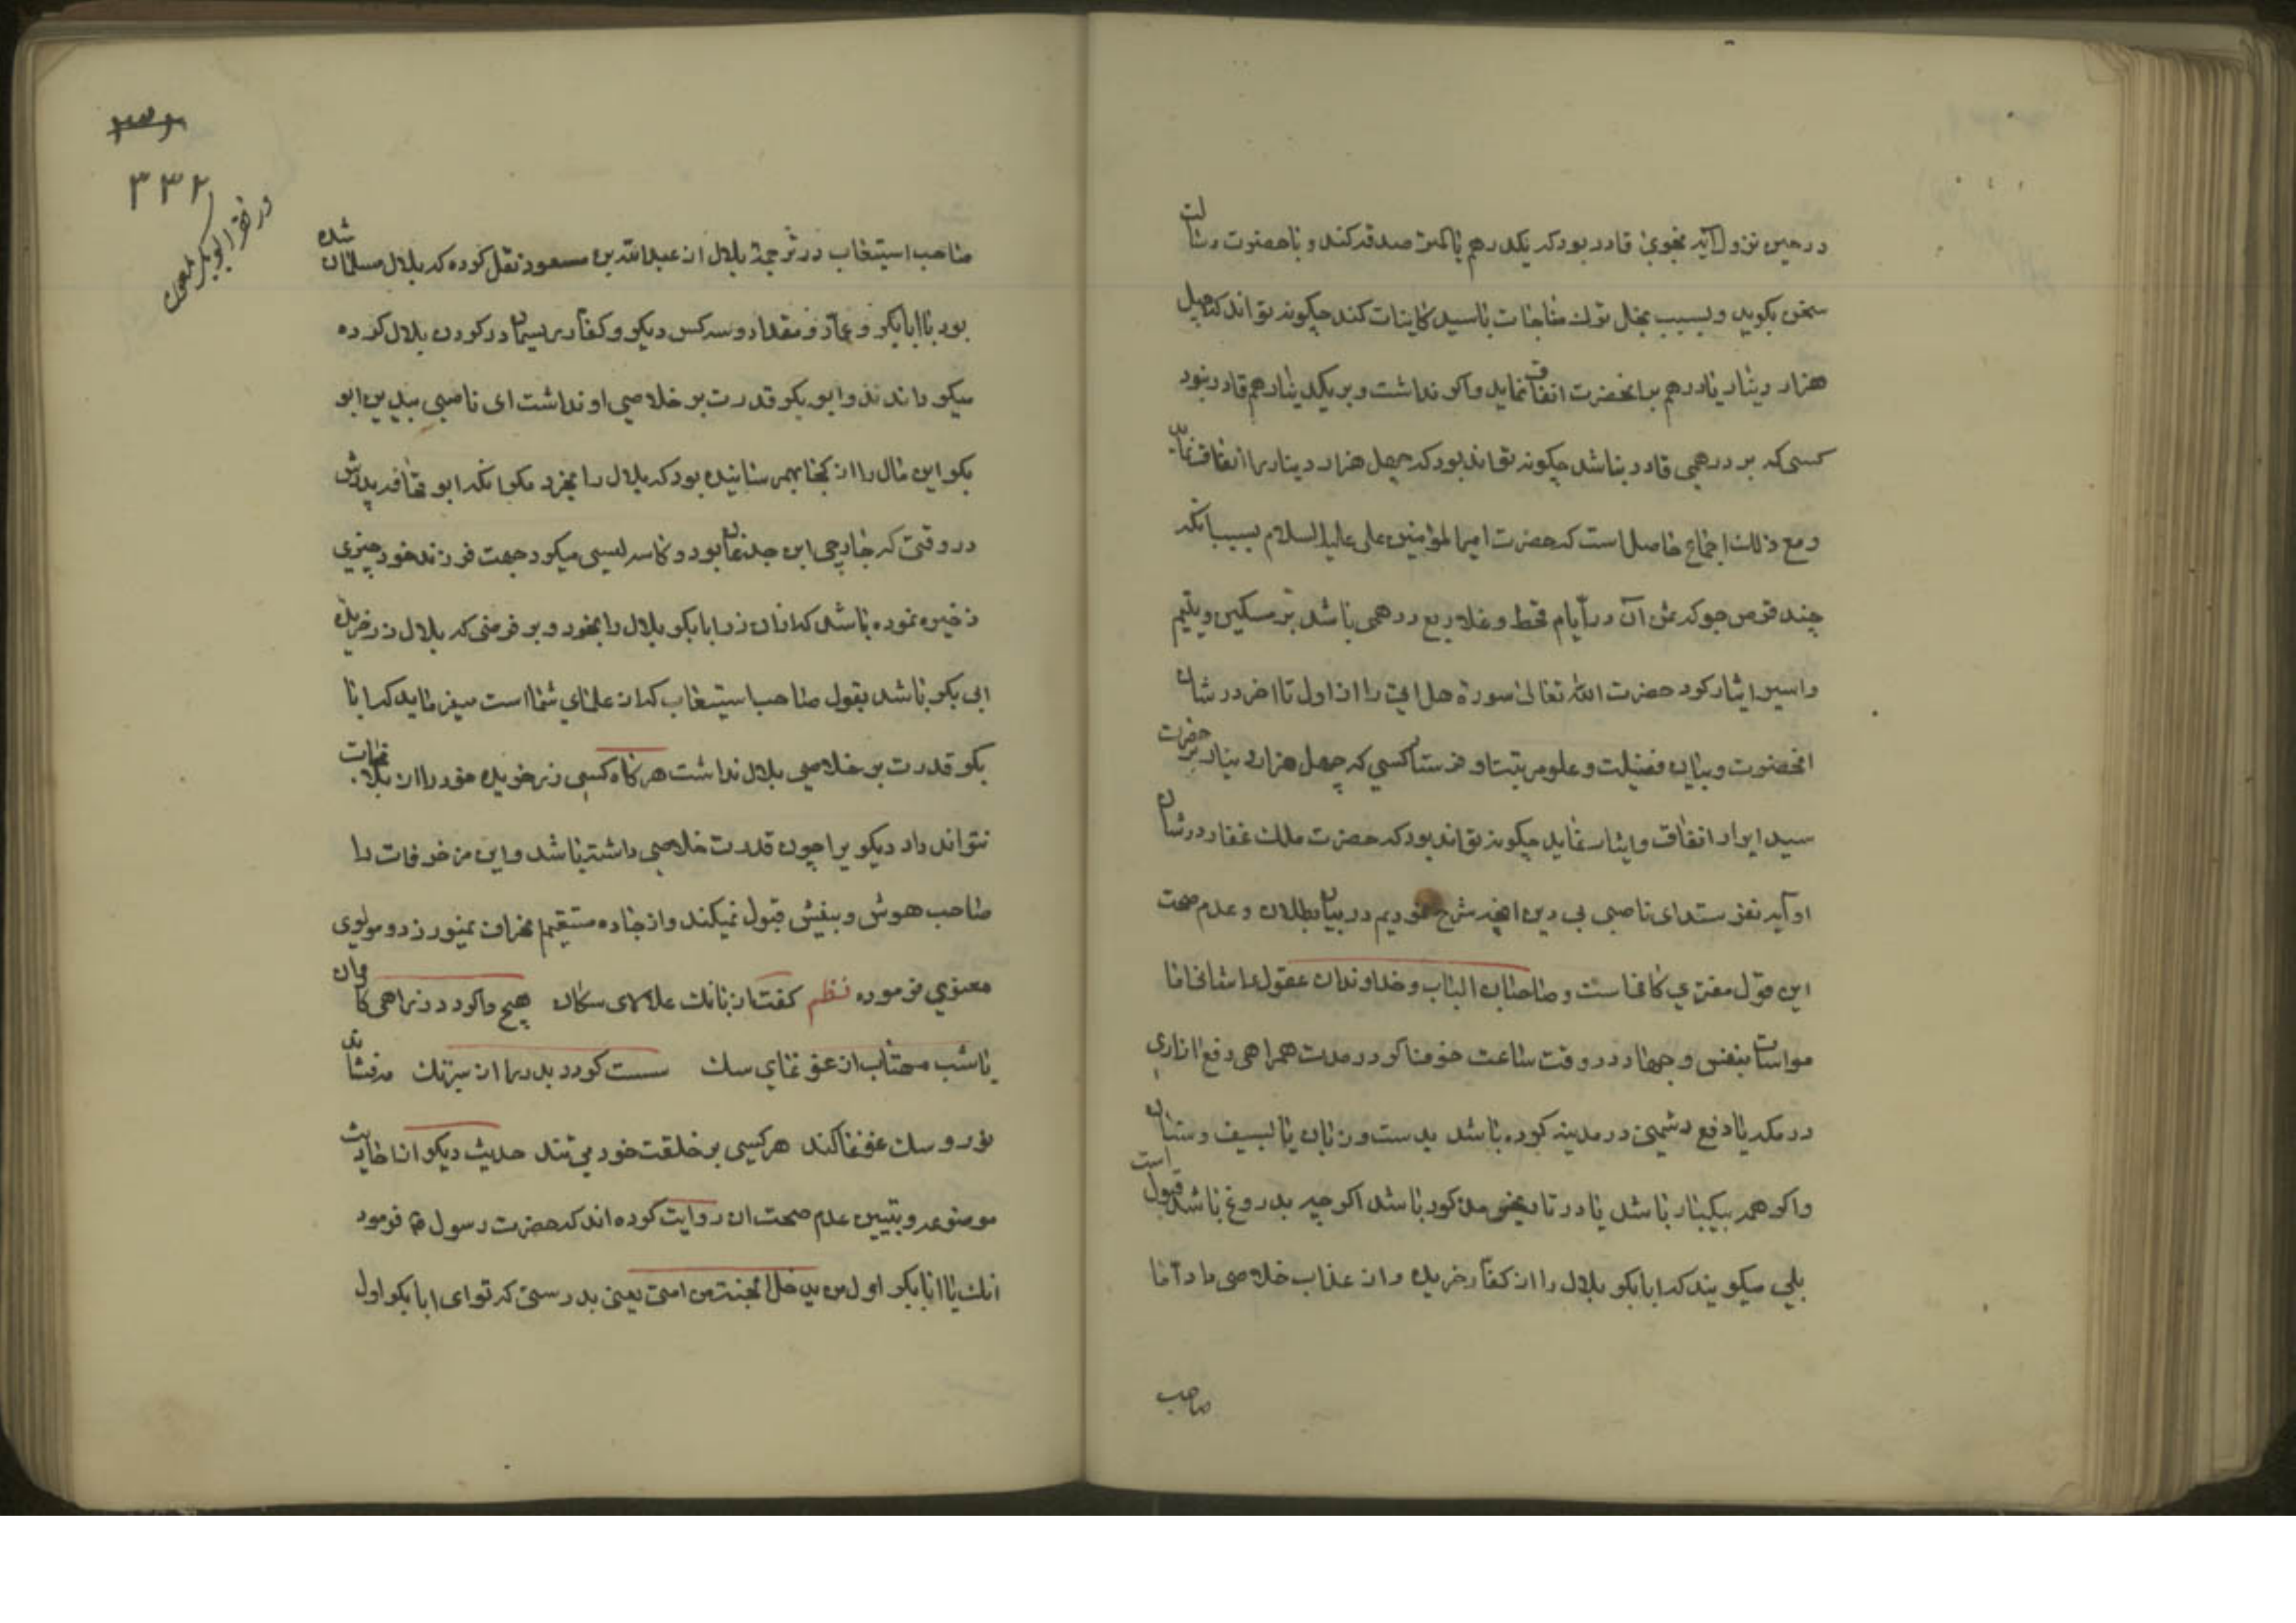 در حین نزول آیه نجوی قادر بود که یکدرهم یا کمتر صدقه کند و با حضرت رسالت
سخن بگوید و بسبب بخل ترک مناجات با سید کاینات کند چگونه تواند که چهل
هزار دینار یا درهم بر آنحضرت انفاق نماید و اگر نداشت و بر یکدینار هم قادر نبود
کسی که بر درهمی قادر نباشد چگونه تواند بود که چهل هزار دینار را انفاق نماید
و مع ذلک اجماع حاصل است که حضرت امیرالمؤمنین علی علیه السلام بسبب آنکه
چند قرص جو که ثمن آن در ایام قحط و غلا ربع درهمی باشد بر مسکین و یتیم
و اسیر ایثار کرد حضرت الله تعالی سورة هل اتی را از اول تا اخر در شان
انحضرت و بیان فضیلت و علو مرتبت او فرستاد کسی که چهل هزار دینار بر حضرت
سید ابرار انفاق و ایثار نماید چگونه تواند بود که حضرت ملک غفار در شان
او آیه نفرستد ای ناصبی بی دین انچه شرح نمودیم در بیان بطلان و عدم صحت
این قول مفتری کافیست و صاحبان الباب و خداوندان عقول را شافی اما
مواسات بنفس و جهاد در وقت ساعت خوفناک و در مدت همراهی دفع ازاری
در مکه یا دفع دشمنی در مدینه کرده باشد بدست و زبان یا بسیف و سنان
و اگر همه بیکبار باشد یا در تاریخی مذکور باشد اگر چه بدروغ باشد قبول است
بلی میگویند که ابابکر بلال را از کفار خریده و از عذاب خلاصی داد اما
صاحب
۳۳۲
صاحب استیعاب در ترجمۀ بلال از عبدالله بن مسعود نقل کرده که بلال مسلمان شده
بود با ابابکر و عمار و مقداد و سه کس دیگر و کفار ریسمان در گردن بلال کرده
میگرداندند و ابوبکر قدرت بر خلاصی او نداشت ای ناصبی بیدین ابو
بکر این مال را از کجا بهم رسانیده بود که بلال را بخرد مگر انکه ابو قحافه پدرش
در وقتی که جارچی ابن جدعان بود و کاسه لیسی میکرد جهت فرزند خود چیزی
ذخیره نموده باشد که ازان زر ابابکر بلال را بخرد و بر فرضی که بلال زرخرید
ابی بکر باشد بقول صاحب استیعاب که از علمای شما است میفرماید که ابا
بکر قدرت بر خلاصی بلال نداشت هر کاه کسی زرخریده خود را از بلا نجات
نتواند داد دیگری را چون قدرت خلاصی داشته باشد و این مزخرفات را
صاحب هوش و بینش قبول نمیکند و از جاده مستقیم انحراف نمیورزد و مولوی
معنوی فرموده نظم کفت از بانک علالای سکان هیچ واکردد ز راهی کاروان
یا شب مهتاب از غوغای سک سست کردد بدر را در سیر تک مه فشاند
نور و سک عوعو کند هر کسی بر خلقت خود می تند حدیث دیگر از احادیث
موضوعه و تبیین عدم صحت ان روایت کرده اند که حضرت رسول ص فرمود
انک یا ابابکر اول من یدخل الجنة من امتی یعنی بدرستی که تو ای ابابکر اول